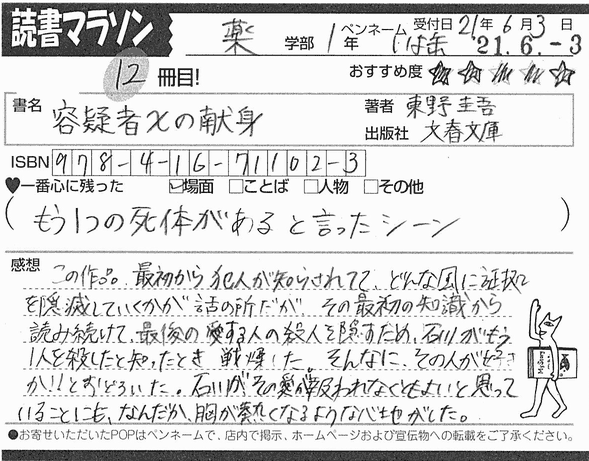 読書マラソン
薬 学部 1年 ペンネーム いば缶 受付日 21年 6月 3日
'21.6.-3
12 冊目! おすすめ度 ☆☆☆☆☆
書名 容疑者Xの献身
著者 東野圭吾
出版社 文春文庫
ISBN 978-4-16-711102-3
♥一番心に残った ☑場面 □ことば □人物 □その他
(もう1つの死体があると言ったシーン)
感想
この作品。最初から犯人が知らされてて、どんな風に証拠
を隠滅していくかが話の所だが、その最初の知識から
読み続けて、最後の愛する人の殺人を隠すため、石川がもう
1人を殺したと知ったとき 戦慄した。そんなに、その人が好き
か!!とおどろいた。石川がその愛が報われなくともよいと思って
いることにも、なんだか、胸が熱くなるような心地がした。
Mystery
●お寄せいただいたPOPはペンネームで、店内で掲示、ホームページおよび宣伝物への転載をご了承ください。